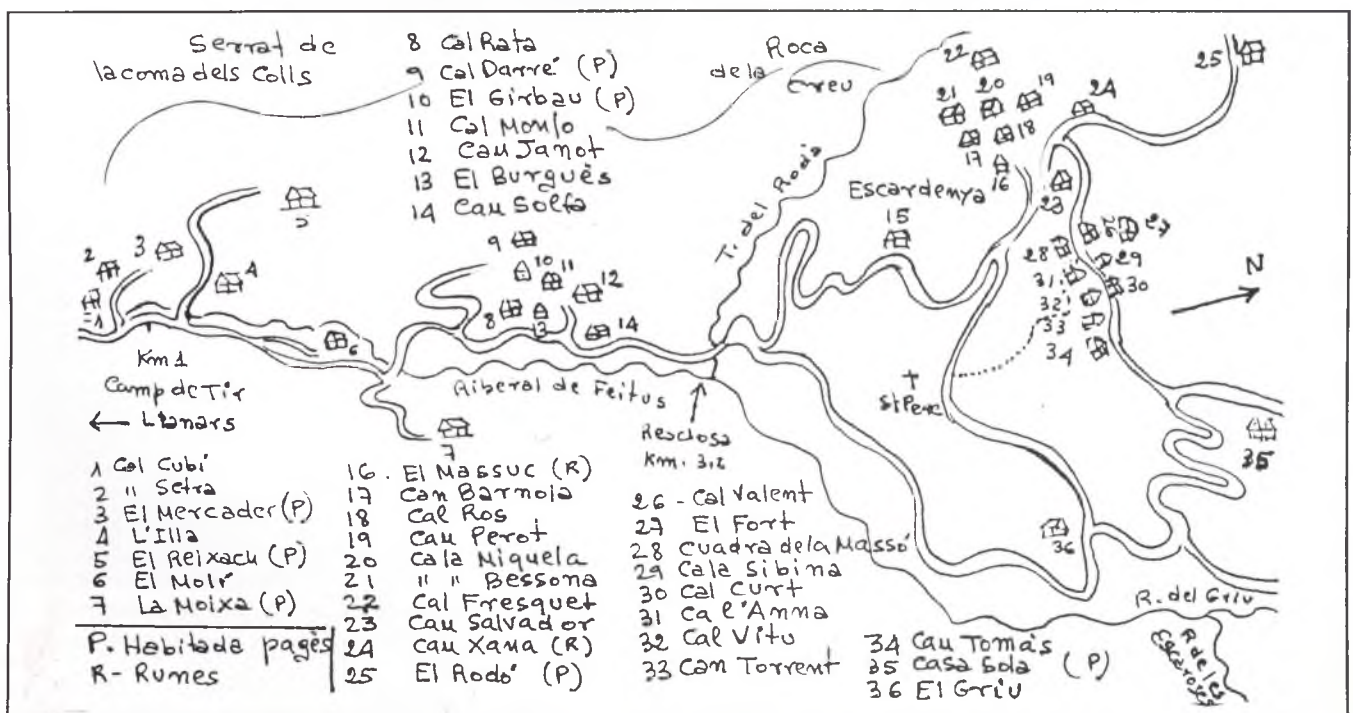 Serrat de
la coma dels Colls
8 Cal Rata
9 Cal Darré (P)
10 El Girbau (P)
11 Cal Monjo
12 Can Janot
13 El Burguès
14 Can Solfa
Roca
de la
Creu
T. del Rodà
Escardenya
15
16
17
18
19
20
21
22
23
24
25
26
27
28
29
30
31
32
33
34
35
36
N
1
2
3
4
5
6
7
8
9
10
11
12
13
14
Km 1
Camp de Tir
← Llanars
Riberal de Feitus
Resclosa
Km. 3,2
St Pere
R. del Griu
R. de les
Escaroses
1 Cal Cubí
2 " Setra
3 El Mercader (P)
4 L'Illa
5 El Reixach (P)
6 El Molí
7 La Moixa (P)
P. Habitada pagès
R- Runes
16. El Massuc (R)
17 Can Barnola
18 Cal Ros
19 Can Perot
20 Ca la Miquela
21 " " Bessona
22 Cal Fresquet
23 Can Salvador
24 Can Xana (R)
25 El Rodó (P)
26 - Cal Valent
27 El Fort
28 Cuadra de la Massó
29 Ca la Sibina
30 Cal Curt
31 Ca l'Anna
32 Cal Vitu
33 Can Torrent
34 Can Tomás
35 Casa Sola (P)
36 El Griu